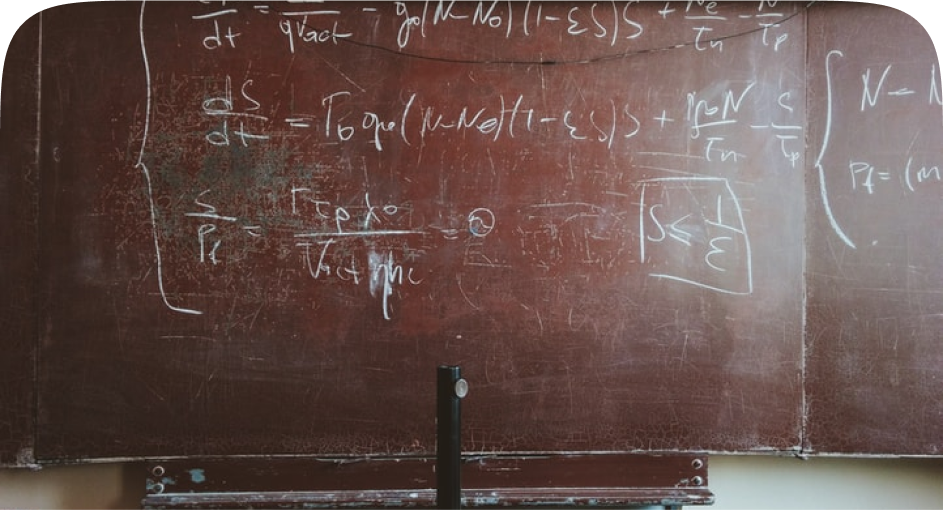 dt = qVact - g₀(N-N₀)(1-εS)S + Ne/τn - N/τp
dS/dt = Γ₀ g₀(N-N₀)(1-εS)S + N/τn - S/τp
S/Pf = Γτpλ₀/Vact ηhc =
S ≤ 1/ε
N - N
Pf = (m